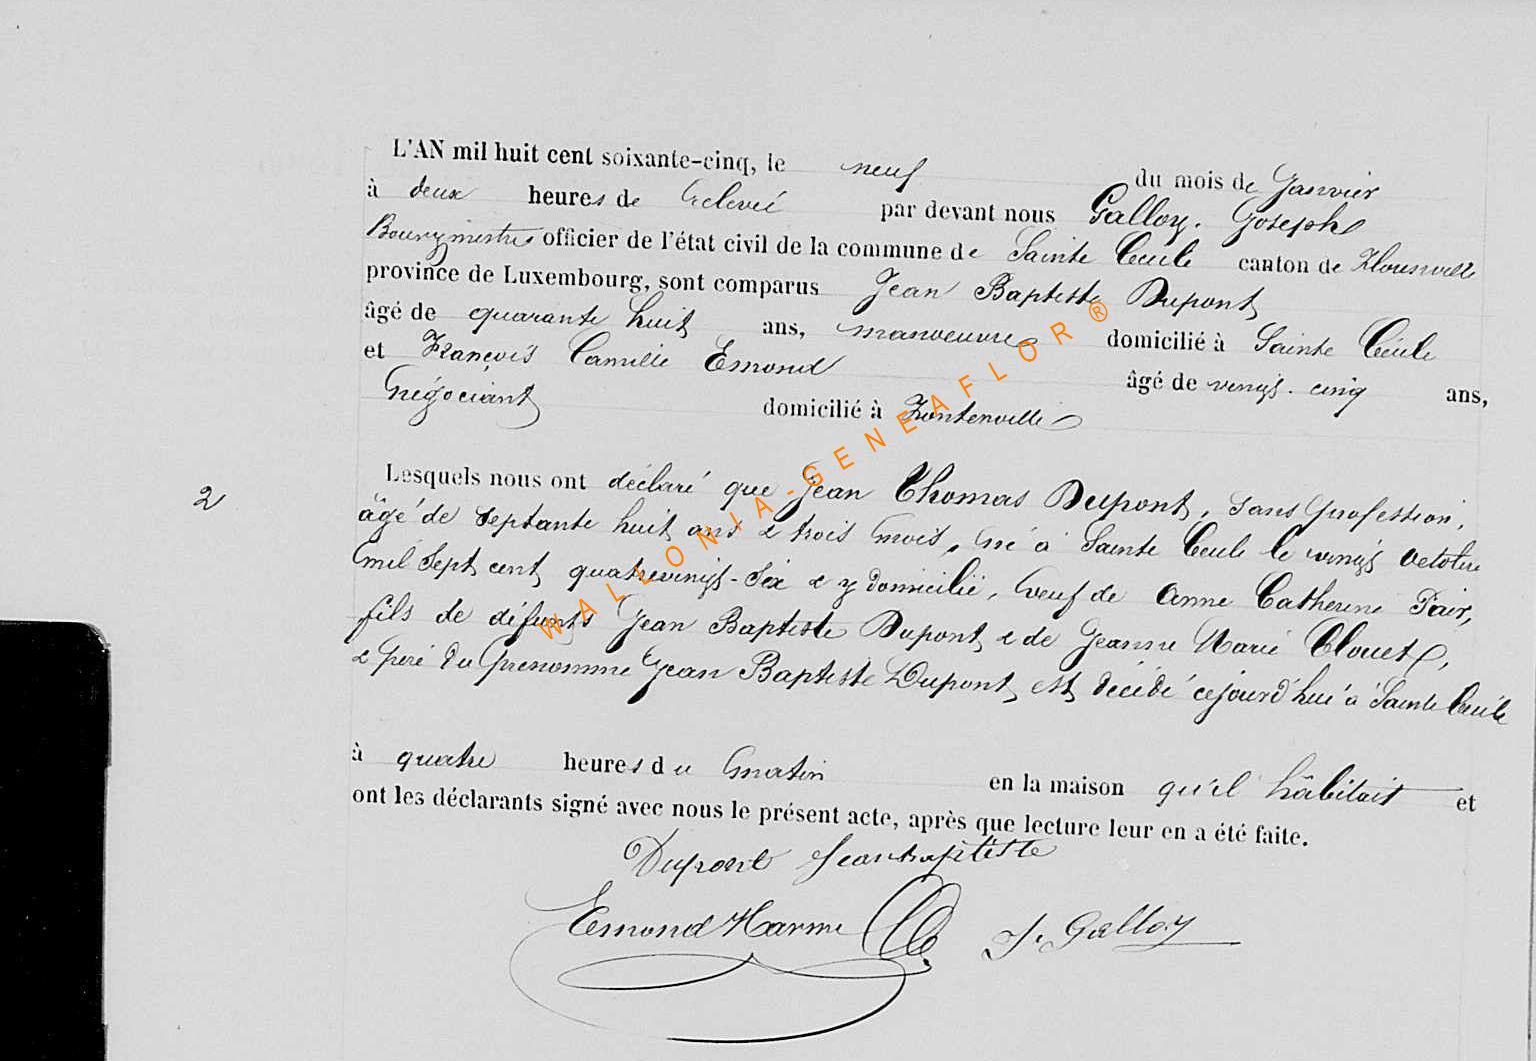 L'AN mil huit cent soixante-cinq, le neuf du mois de Janvier
à deux heures de relevée par devant nous Galloy. Joseph
Bourgmestre officier de l'état civil de la commune de Sainte Cécile canton de Florenville
province de Luxembourg, sont comparus Jean Baptiste Dupont
âgé de quarante huit ans, manoeuvre domicilié à Sainte Cécile
et François Camille Emond âgé de vingt-cinq ans,
Négociant domicilié à Fontenville
Lesquels nous ont déclaré que Jean Thomas Dupont, sans profession,
2
âgé de septante huit ans & trois mois, né à Sainte Cécile le vingt octobre
mil sept cent quatrevingt-six & y domicilié, veuf de Anne Catherine
fils de défunts Jean Baptiste Dupont & de Jeanne Marie Clouet,
& père du prenommé Jean Baptiste Dupont est décédé cejourd'hui à Sainte Cécile
à quatre heures du matin en la maison qu'il hâbitait et
ont les déclarants signé avec nous le présent acte, après que lecture leur en a été faite.
Dupont Jeanbaptiste
Emond Harmel J. Galloy
WALLONIA-GENEAFLOR®